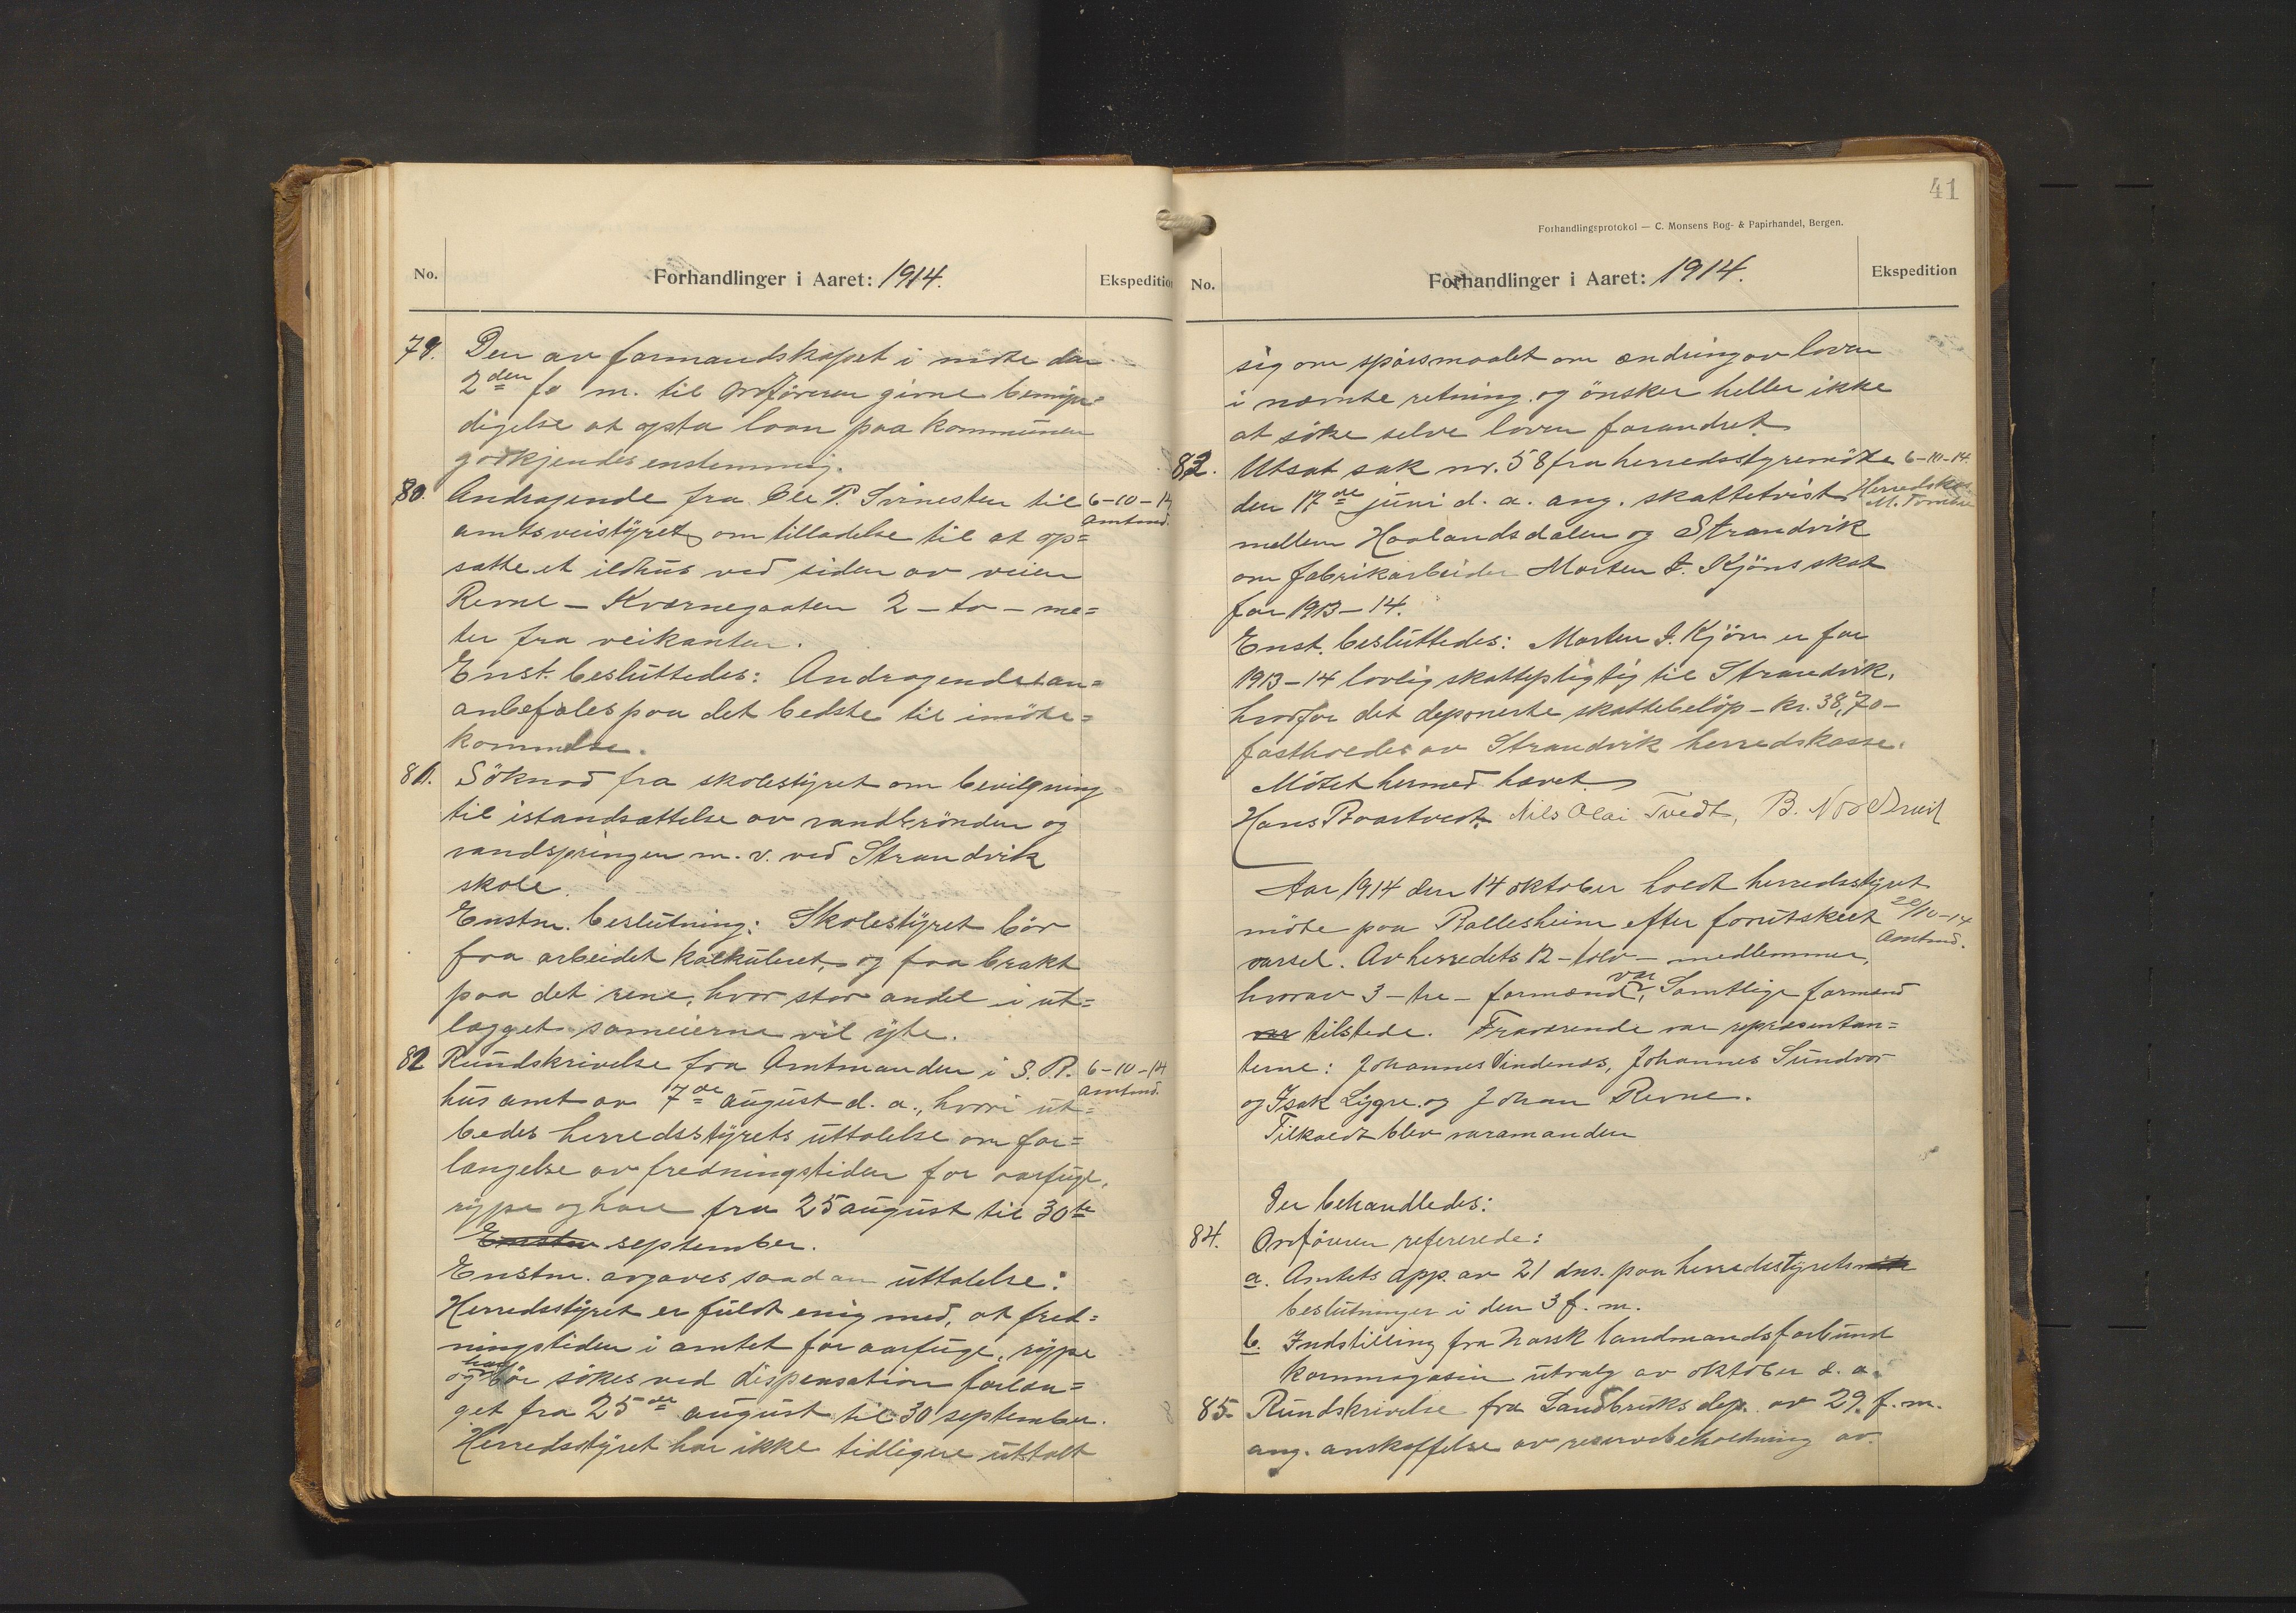 No.
Forhandlinger i Aaret: 1914.
Ekspedition
79. Den av formandskapet i möte den
2den f. m. til ordføreren givne bemyn=
digelse at opta laan paa kommunen
godkjendes enstemmig.
80. Andragende fra Ole P. Svinesten til 6-10-14
amtsveistyret om tilladelse til at op= Amtmd.
sætte et ildhus ved siden av veien
Revne - Kværnegaaten 2 - to - me=
ter fra veikanten.
Enst. besluttedes: Andragendet an=
anbefales paa det bedste til imöte=
kommelse.
81. Söknad fra skolestyret om bevilgning
til istandsættelse av vandbrönden og
vandspringen m. v. ved Strandvik
skole.
Enstm. beslutning: Skolestyret bör
faa arbeidet kalkuleret, og faa brakt
paa det rene, hvor stor andel i ut=
lægget sameierne vil yte.
82 Rundskrivelse fra Amtmanden i S. B. 6-10-14
hus amt av 7de august d. a., hvori ut= Amtmd.
bedes herredsstyrets uttalelse om for=
længelse av fredningstiden for aarfugl,
rype og hare fra 25 august til 30te
Enstm september.
Enstm. avgaves saadan uttalelse:
Herredsstyret er fuldt enig med, at fred=
ningstiden i amtet for aarfugl, rype
og hare bör sökes ved dispensation forlæn=
get fra 25de august til 30 september.
Herredsstyret har ikke tidligere uttalt
41
Forhandlingsprotokol — C. Monsens Bog- & Papirhandel, Bergen.
No.
Forhandlinger i Aaret: 1914.
Ekspedition
sig om spörsmaalet om ændring av loven
i nævnte retning og önsker heller ikke
at söke selve loven forandret.
83. Utsat sak nr. 58 fra herredsstyremöte 6-10-14.
den 17de juni d. a. ang. skattetvist Herredskas.
M.
mellem Haalandsdalen og Strandvik
om fabrikarbeider Morten I. Kjöns skat
for 1913-14.
Enst. besluttedes: Morten I. Kjön er for
1913-14 lovlig skattepligtig til Strandvik,
hvorfor det deponerte skattebelöp - kr. 38,70 -
fastholdes av Strandvik herredskasse.
Mötet hermed hævet.
Hans Baartvedt. Nils Olai Tvedt, B. Nordvik
Aar 1914 den 14 oktober holdt herredsstyret
möte paa Ballesheim efter forutskeet 20/10-14
varsel. Av herredets 12 - tolv - medlemmer, Amtmd.
hvorav 3 - tre - formænd, var Samtlige formænd
var tilstede. Fraværende var repræsentan=
terne: Johannes Vindenes, Johannes Sundvor
og Isak Lygre. og Johan Revne.
Tilkaldt blev varamanden
Der behandledes:
84. Ordföreren refererede:
a. Amtets app. av 21 dns. paa herredsstyrets möte
beslutninger i den 3 f. m.
b. Indstilling fra norsk landmandsforbund
kornmagasin utvalg av oktober d. a.
85. Rundskrivelse fra Landbruks dep. av 29. f. m.
ang. anskaffelse av reservebeholdning av